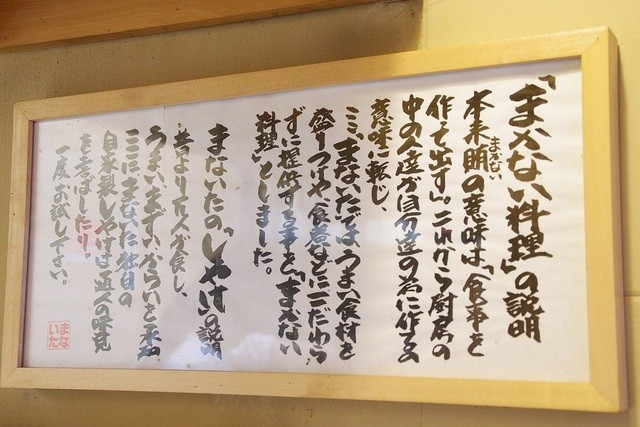 「まかない料理」の説明
本来賄の意味は、「食事を
まかない
作て出す」。これから厨房の
中の人達が自分達の為に作る
意味に転じ、
ここ、まないたでは、うまい食材を
盛りつけや、食器などにこだわら
ずに提供する事を「まかない
料理」としました。
まないたの「しゃけ」の説明
昔より万人が食し、
うまい、まずい、からいを承知
ここに、まないた独自の
自家製しゃけは通人の味見
を
ばしたり。
一度お試し下さい。
まな
いた